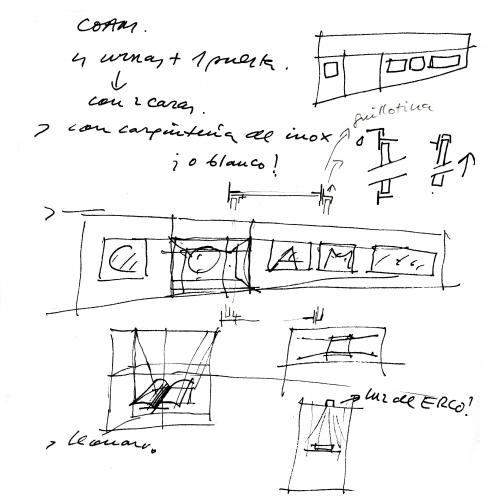 COAM.
4 urnas + 1 puerta.
con 2 caras.
> con carpintería de inox
¡o blanco!
guillotina
> luz de ERCO!
>